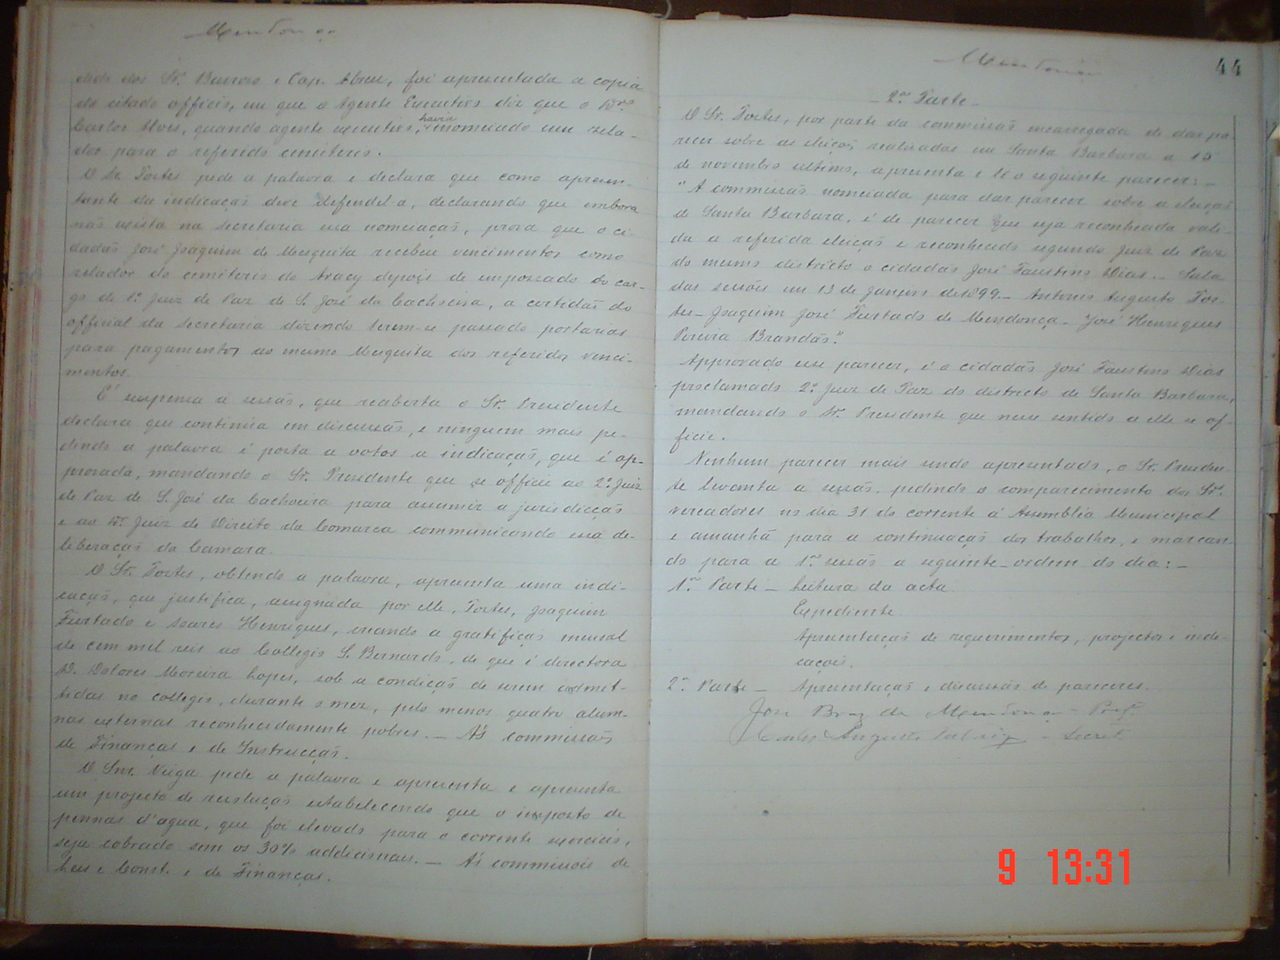 Mendonça
dido dos Srs. Barroso e Cap. Abreu, foi apresentada a copia
do citado officio, em que o Agente Executivo diz que o Dr.
Carlos Alves, quando agente executivo, havia nomeado um zela-
dor para o referido cemiterio.
O Sr. Fortes pede a palavra e declara que como apresen-
tante da indicação deve defendel-a, declarando que embora
não exista na secretaria essa nomeação, prova que o ci-
dadão José Joaquim de Mesquita recebeu vencimentos como
zelador do cemiterio do Aracy depois de empossado do car-
go de 1º Juiz de Paz de S. José da Cachoeira, a certidão do
official da secretaria dizendo terem-se passado portarias
para pagamentos ao mesmo Mesquita dos referidos venci-
mentos.
É suspensa a sessão, que reaberta o Sr. Presidente
declara que continúa em discussão, e ninguem mais pe-
dindo a palavra é posta a votos a indicação, que é ap-
provada, mandando o Sr. Presidente que se officie ao 2º Juiz
de Paz de S. José da Cachoeira para assumir a jurisdicção
e ao Dr. Juiz de Direito da Comarca communicando essa de-
liberação da Camara.
O Sr. Fortes, obtendo a palavra, apresenta uma indi-
cação, que justifica, assignada por elle, Fortes, Joaquim
Furtado e Soares Henriques, creando a gratificação mensal
de cem mil reis ao Collegio S. Bernardo, de que é directora
D. Dolores Moreira Lopes, sob a condição de serem admit-
tidas no collegio, durante o mez, pelo menos quatro alum-
nas externas reconhecidamente pobres. — Ás commissões
de Finanças e de Instrucção.
O Snr. Veiga pede a palavra e apresenta e apresenta
um projecto de resolução estabelecendo que o imposto de
pennas d'agua, que foi elevado para o corrente exercicio,
seja cobrado sem os 30% addicionaes. — Ás commissões de
Leis e Const. e de Finanças.
Mendonça
44
2ª Parte
O Sr. Fortes, por parte da commissão encarregada de dar pa-
recer sobre as eleições realisadas em Santa Barbara a 15
de novembro ultimo, apresenta e lê o seguinte parecer: —
"A commissão nomeada para dar parecer sobre a eleição
de Santa Barbara, é de parecer que seja reconhecida vali-
da a referida eleição e reconhecido segundo Juiz de Paz
do mesmo districto o cidadão José Faustino Dias. — Sala
das sessões em 13 de Janeiro de 1899. — Antonio Augusto For-
tes — Joaquim José Furtado de Mendonça — José Henriques
Pereira Brandão."
Approvado esse parecer, é o cidadão José Faustino Dias
proclamado 2º Juiz de Paz do districto de Santa Barbara,
mandando o Sr. Presidente que nesse sentido a elle se of-
ficie.
Nenhum parecer mais sendo apresentado, o Sr. Presiden-
te levanta a sessão, pedindo o comparecimento dos Srs.
vereadores no dia 31 do corrente á Assembléa Municipal
e amanhã para a continuação dos trabalhos, e marcan-
do para a 1ª sessão a seguinte ordem do dia: —
1ª Parte — Leitura da acta
Expediente
Apresentação de requerimentos, projectos e indi-
cações.
2ª Parte — Apresentação e discussão de pareceres.
José Braz de Mendonça — Pres.
Carlos Augusto — Secret.
9 13:31